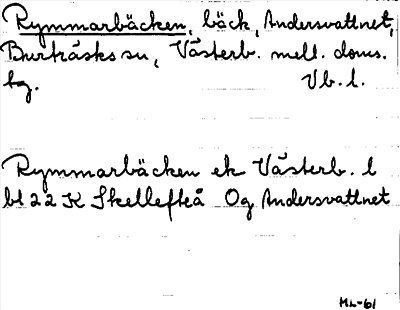 Rymmarbäcken, bäck, Andersvattnet,
Burträsks sn, Västerb. mell. doms.
hg. Vb. l.
Rymmarbäcken ek Västerb. l
bl 22 K Skellefteå Og Andersvattnet
ML-61